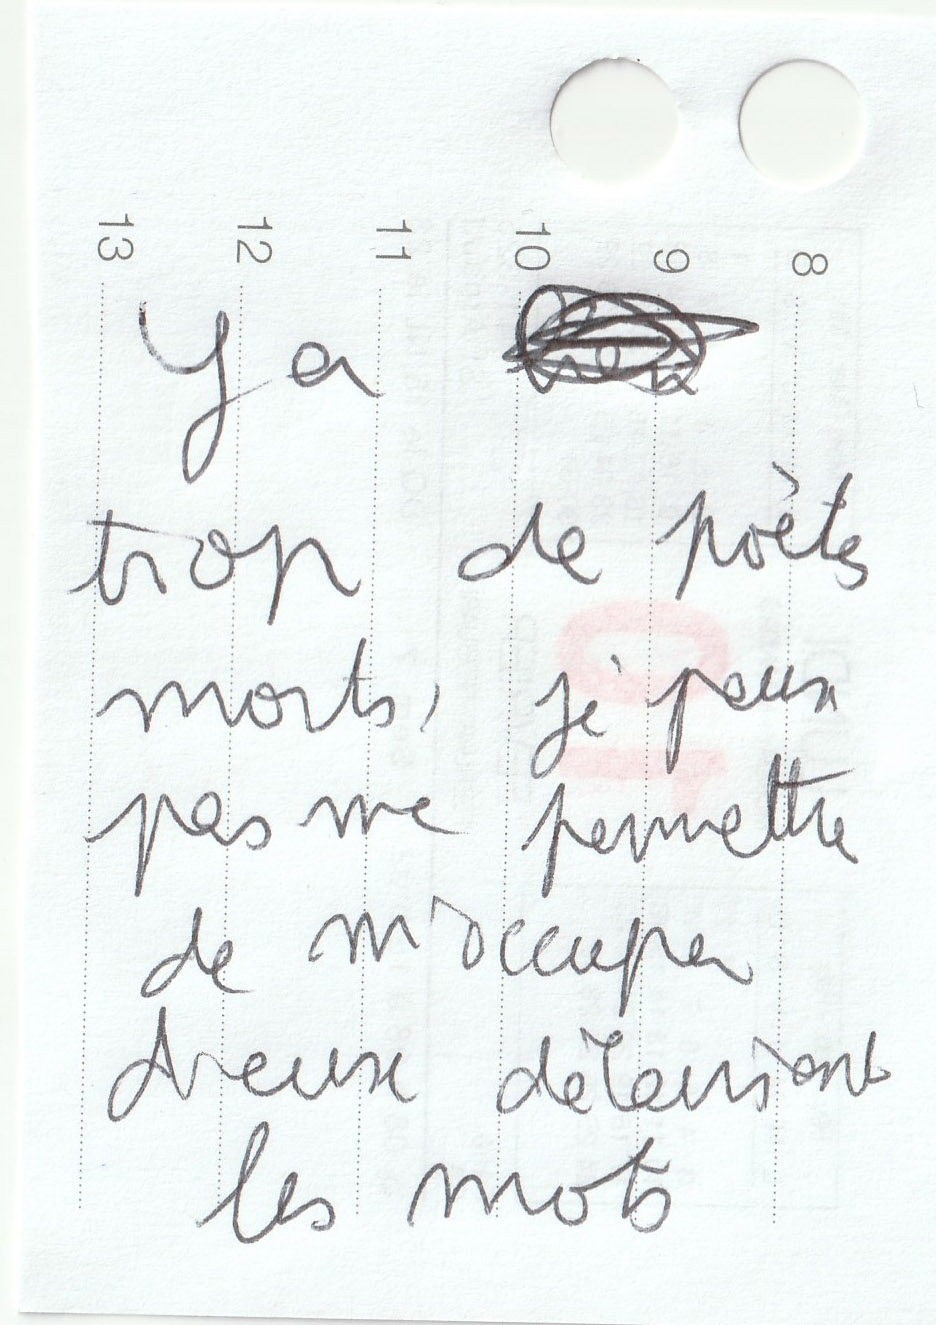 13 12 11 10 9 8
Ya
trop de poètes
morts, je peux
pas me permettre
de m'occuper
d'ceux
les mots